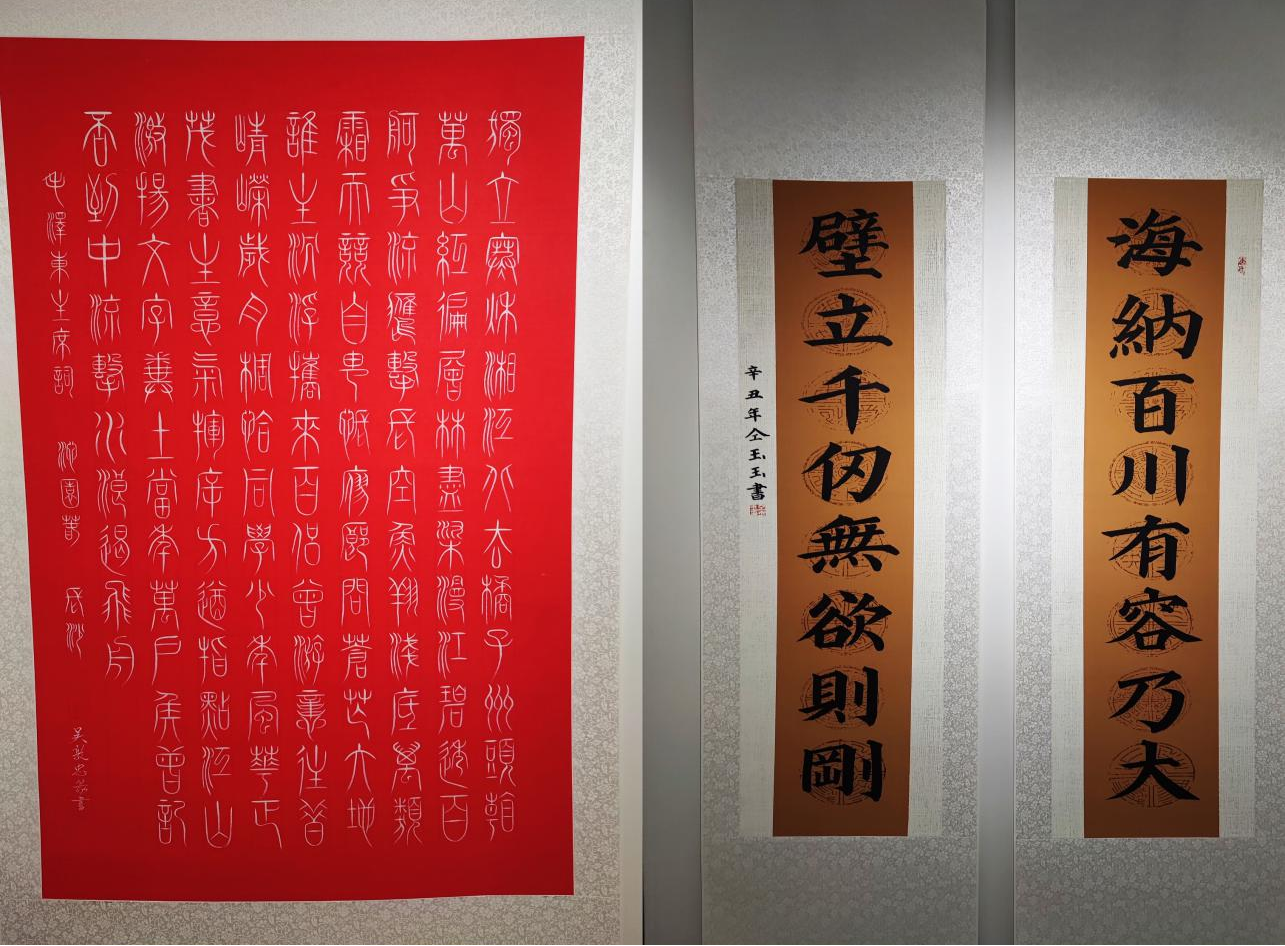 獨立寒秋湘江北去橘子洲頭看
萬山紅遍層林盡染漫江碧透百
舸爭流鷹擊長空魚翔淺底萬類
霜天競自由悵寥廓問蒼茫大地
誰主沉浮攜來百侶曾游憶往昔
崢嶸歲月稠恰同學少年風華正
茂書生意氣揮斥方遒指點江山
激揚文字糞土當年萬戶侯曾記
否到中流擊水浪遏飛舟
毛澤東主席詞 沁園春 長沙
海納百川有容乃大
壁立千仞無欲則剛
辛丑年仝玉玉書